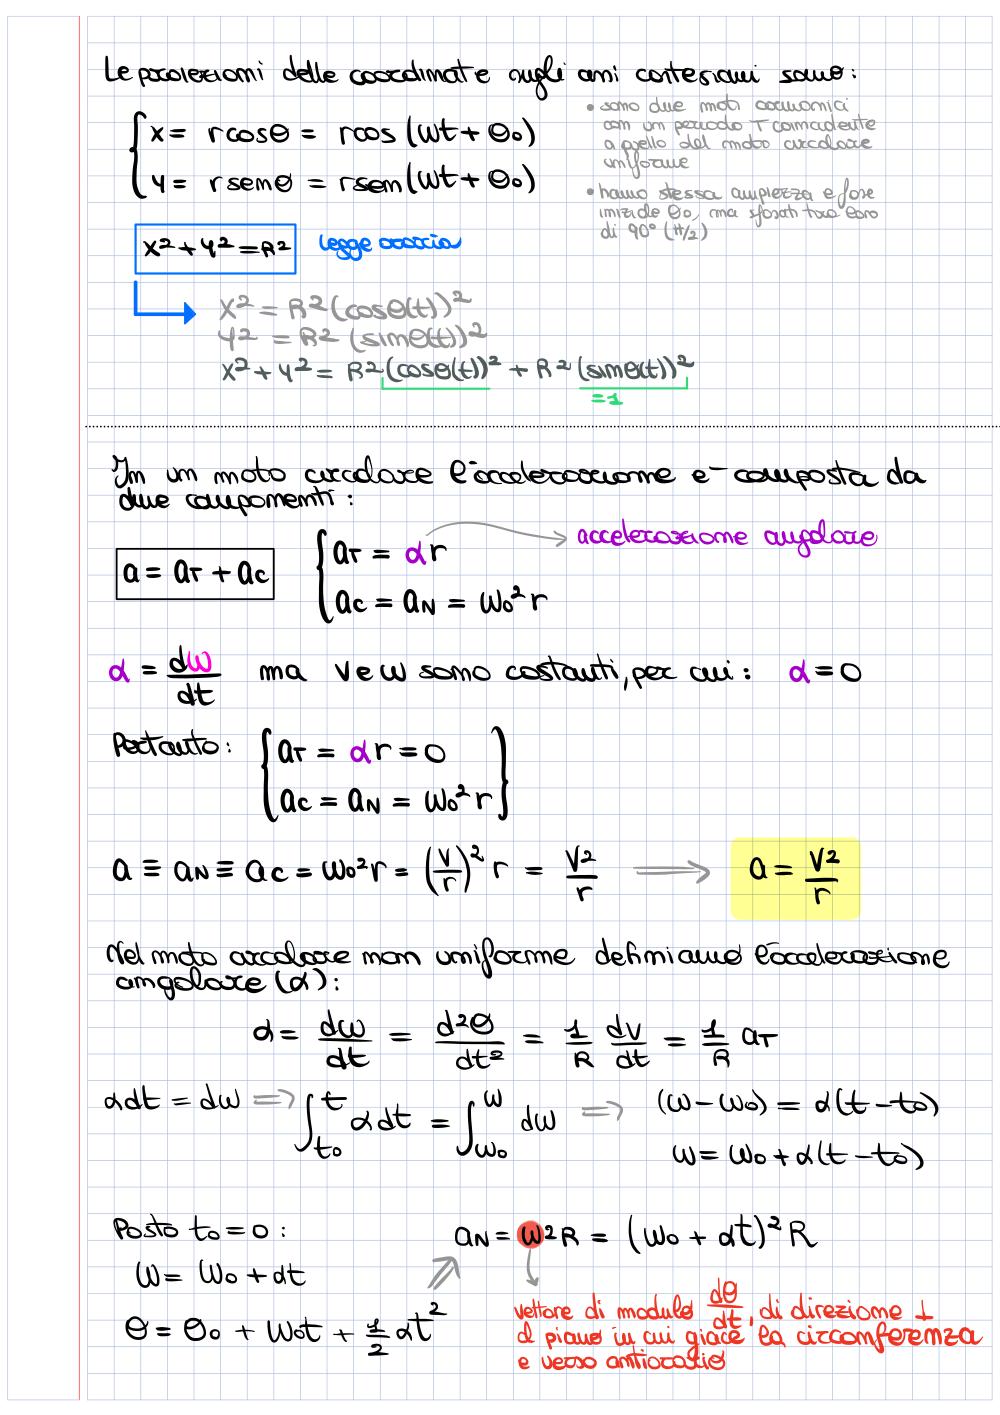 Le proiezioni delle coordinate sugli assi cartesiani sono:
x = rcosθ = rcos (ωt + θ₀)
y = rsenθ = rsen(ωt + θ₀)
• sono due moti armonici
con un periodo T coincidente
a quello del moto circolare
uniforme
• hanno stessa ampiezza e fase
iniziale θ₀, ma sfasati tra loro
di 90° (π/2)
x² + y² = R² legge oraria
x² = R² (cosθ(t))²
y² = R² (sinθ(t))²
x² + y² = R² (cosθ(t))² + R² (sinθ(t))²
= 1
In un moto circolare l'accelerazione è composta da
due componenti:
a = aT + ac
aT = αr
accelerazione angolare
ac = aN = ω₀² r
α = dω/dt ma v e ω sono costanti, per cui: α = 0
Pertanto:
aT = αr = 0
ac = aN = ω₀² r
a ≡ aN ≡ ac = ω₀² r = (v/r)² r = v²/r ⟹ a = v²/r
Nel moto circolare non uniforme definiamo l'accelerazione
angolare (α):
α = dω/dt = d²θ/dt² = 1/R dv/dt = 1/R aT
αdt = dω ⟹ ∫_{t₀}^{t} αdt = ∫_{ω₀}^{ω} dω ⟹ (ω − ω₀) = α(t − t₀)
ω = ω₀ + α(t − t₀)
Posto t₀ = 0:
ω = ω₀ + αt
θ = θ₀ + ω₀t + 1/2 αt²
aN = ω² R = (ω₀ + αt)² R
vettore di modulo dθ/dt, di direzione ⊥
al piano in cui giace la circonferenza
e verso antiorario